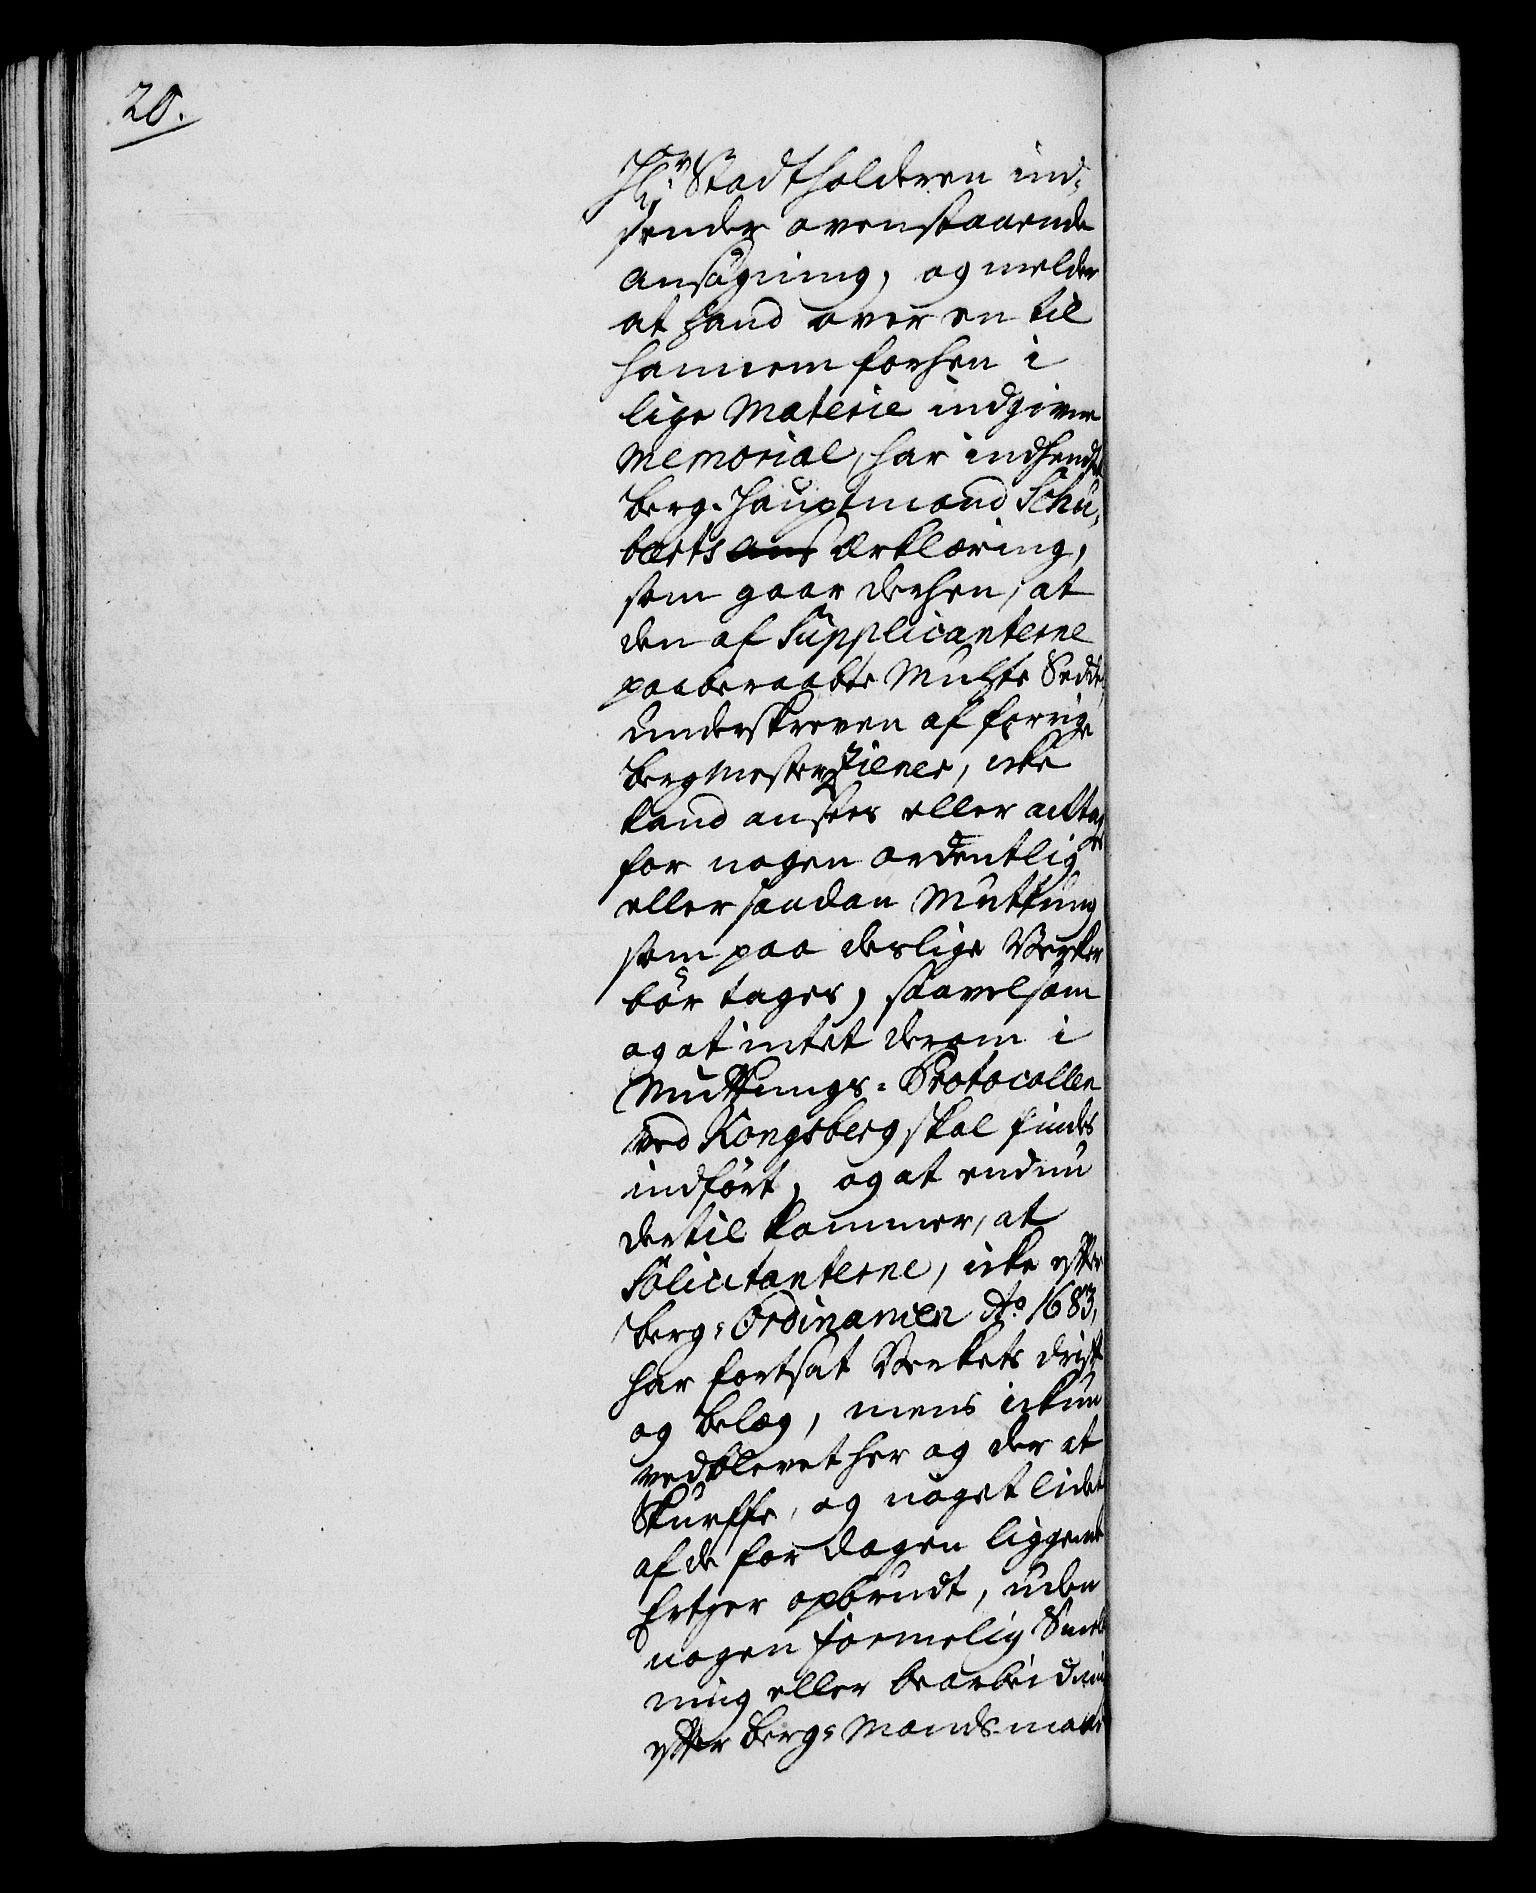 20.
Hr. Stadtholderen ind-
sender ovenstaaende
ansøgning, og melder
at hand over en til
hannem forhen i
lige Materie indgiven
Memorial, har indhendtet
Berg-Hauptmand Schu-
barts ans Erklæring,
som gaar derhen, at
den af Supplicanterne
paaberaabte Muhte Seddel,
underskreven af forrige
Bergmester Ziener, icke
kand ansees eller acktes
for nogen ordentlig
eller saadan Muthung
som paa deslige Verker
bør tages, saavelsom
og at intet derom i
Muthungs-Protocollen
ved Kongsberg skal findes
indført, og at endnu
dertil kommer, at
Sollicitanterne, icke efter
Berg-Ordinancen Ao 1683,
har fortsat Verkets drift
og belæg, mens ickun
vedblevet her og der at
Skurffe, og noget lidet
af de for dagen liggende
Ertzer opbrudt, uden
nogen formelig Smelt-
ning eller bearbeidning
efter Berg-Mands maade